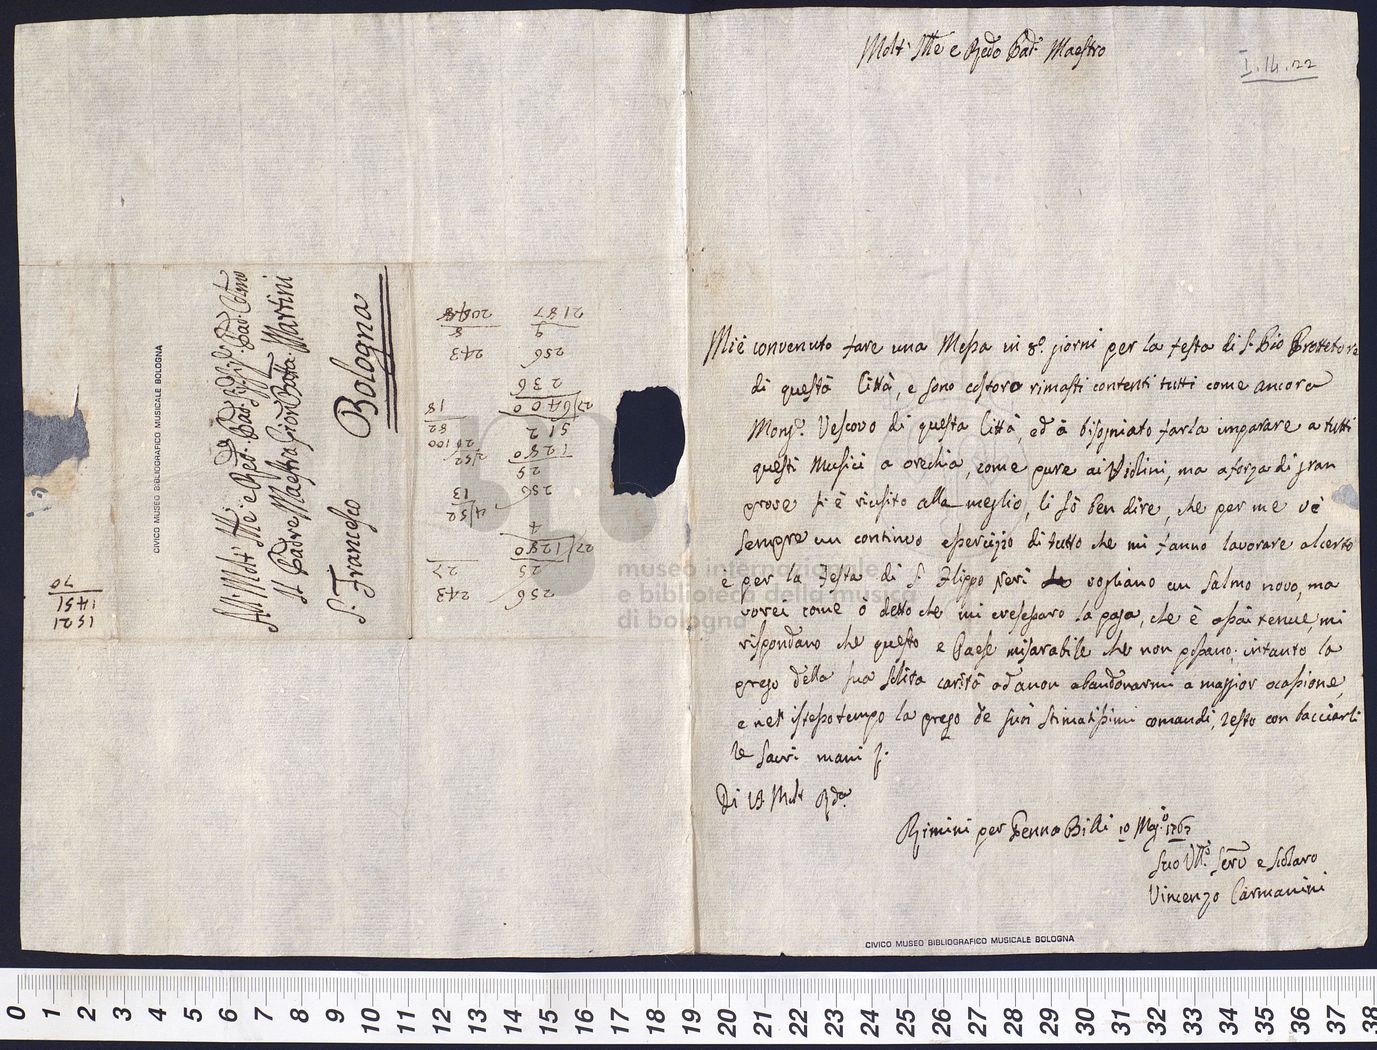 Molt' Ille e Redo Pad. Maestro
I.14.22
Mi è convenuto fare una Messa in 8o. giorni per la festa di S. Pio Protetore
di questa Città, e sono costoro rimasti contenti tutti come ancora
Monsr. Vescovo di questa Città, ed à bisogniato farla imparare a tutti
questi Musici a orechia, come pure ai Violini, ma a forza di gran
prove si è riusito alla meglio, li sò ben dire, che per me vi è
sempre un continuo esercizio di tutto che mi fanno lavorare alcerto
e per la Festa di S. Filippo Neri vogliano un Salmo novo, ma
vorei come ò detto che mi cresessaro la paga, che è assai tenue, mi
rispondano che questo e Paese misarabile che non possano; intanto la
prego della sua solita carità ad a non abandonarmi a maggior ocasione,
e nel istesso tempo la prego de suoi stimatissimi comandi, resto con bacciarli
le sacri mani
Di V.S. Molt Rda.
Rimini per Penna Billi 10 Mago. 1767
Suo Servo e Scolaro
Vincenzo Carmanini
CIVICO MUSEO BIBLIOGRAFICO MUSICALE BOLOGNA
Al Molt' Ille e Redo. Pad.
Il Padre Maestro Gion Batta Martini
S. Francesco
Bologna
CIVICO MUSEO BIBLIOGRAFICO MUSICALE BOLOGNA
256 243
25 27
27/1280
4
256 4/52
25 13
1280 2/52
512 26 100
27/6400 82
236 18
256 243
9 8
2187
1521
1451
70
museo internazionale
e biblioteca della musica
di bologna
0 1 2 3 4 5 6 7 8 9 10 11 12 13 14 15 16 17 18 19 20 21 22 23 24 25 26 27 28 29 30 31 32 33 34 35 36 37 38